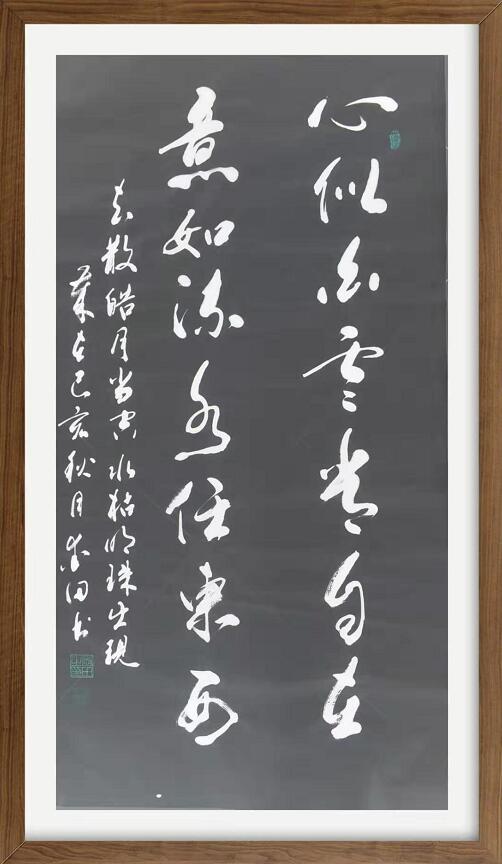 心似白雲常自在
意如流水任東西
云散皓月当空水枯明珠出現
歲在己亥秋月田书